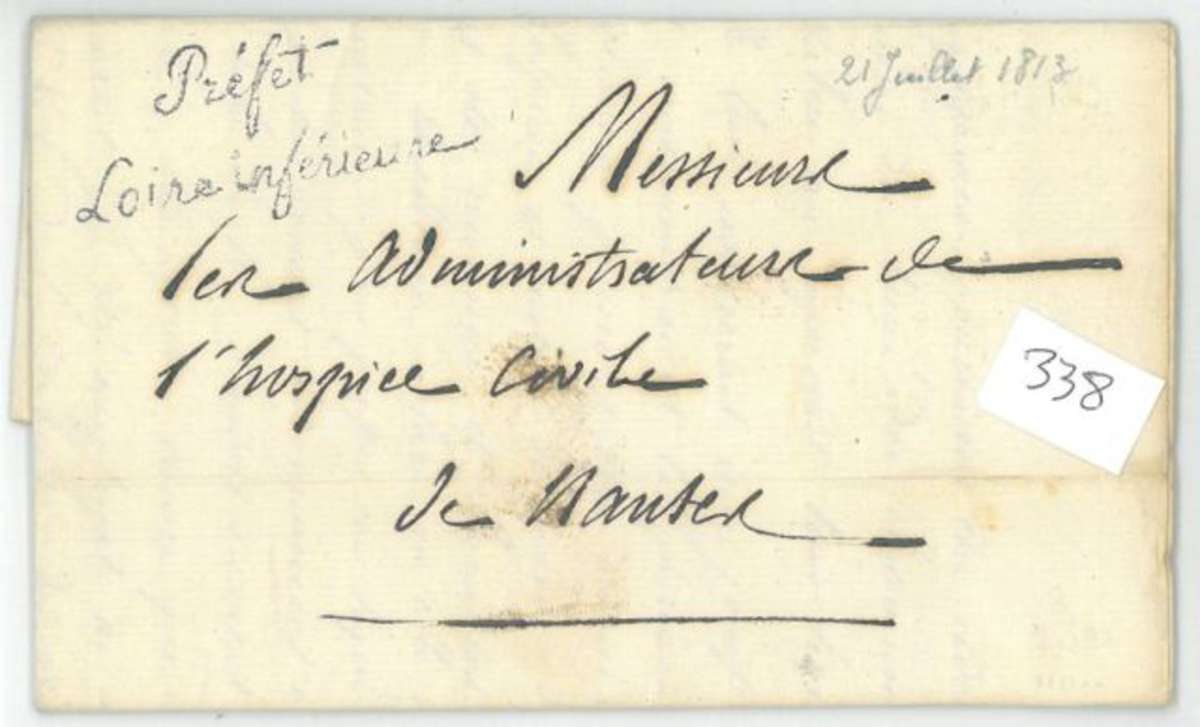 Préfet
Loire inférieure
21 Juillet 1813
Messieurs
les administrateurs de
l'hospice Civile
de Nantes
338